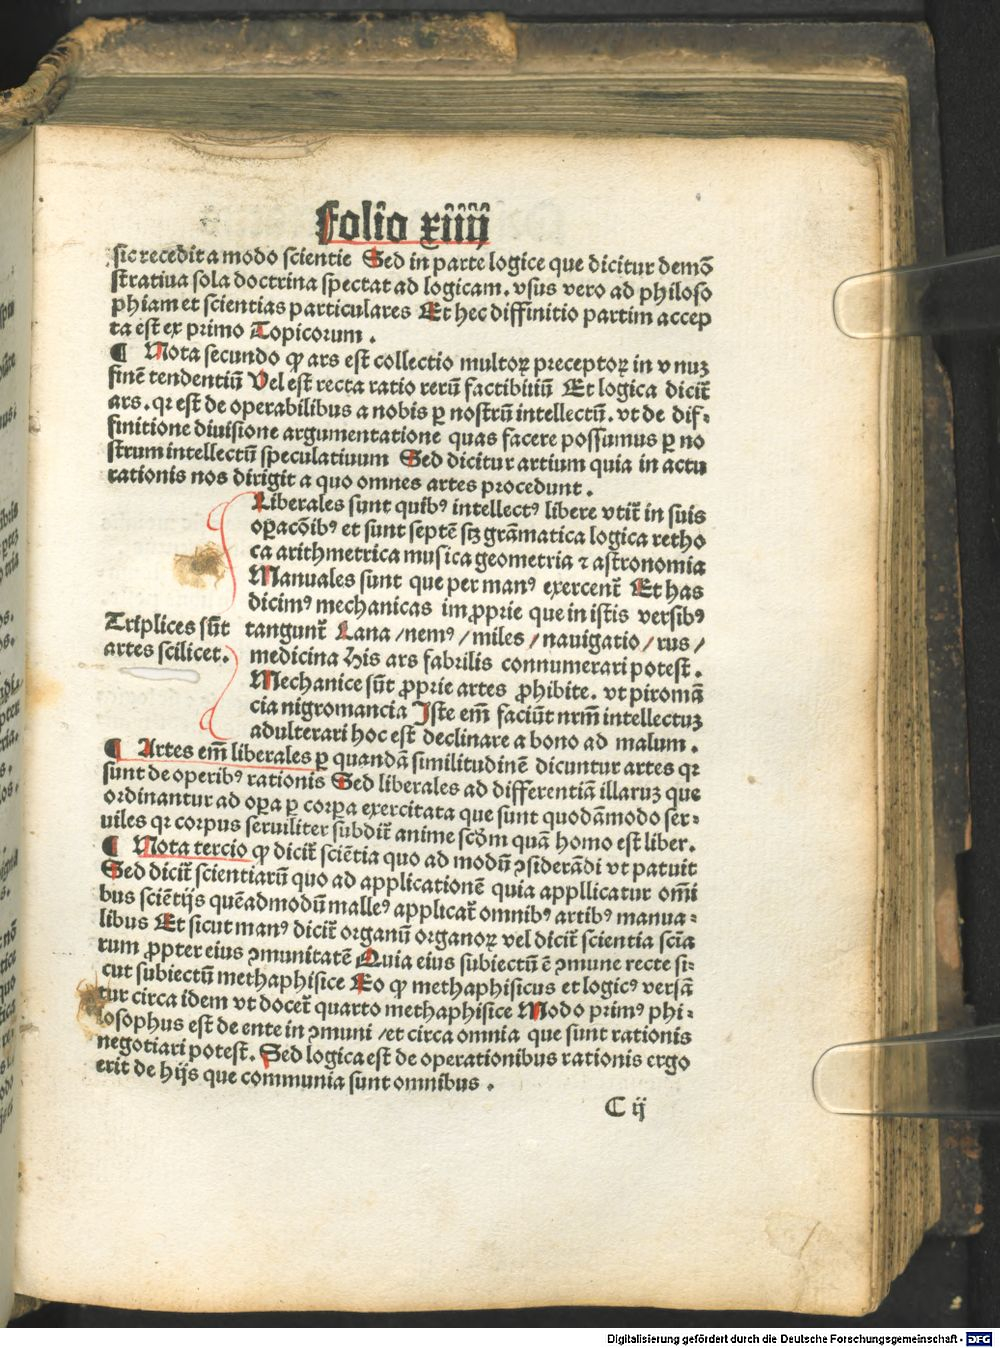 folio xiiij
sic recedit a modo scientie Sed in parte logice que dicitur demō
stratiua sola doctrina spectat ad logicam. vsus vero ad philoso
phiam et scientias particulares Et hec diffinitio partim accep
ta est ex primo Topicorum .
¶ Nota secundo ꝙ ars est collectio multoꝝ preceptoꝝ in vnuꝫ
finē tendentiū Vel est recta ratio rerū factibiliū Et logica dicit᷑
ars. qꝛ est de operabilibus a nobis ꝑ nostrū intellectū. vt de dif⸗
finitione diuisione argumentatione quas facere possumus ꝑ no
strum intellectū speculatiuum Sed dicitur artium quia in actu
rationis nos dirigit a quo omnes artes procedunt .
Liberales sunt quibꝰ intellectꝰ libere vtit᷑ in suis
oꝑacōibꝰ et sunt septē sꝫ grāmatica logica retho
ca arithmetrica musica geometria ⁊ astronomia
Manuales sunt que per manꝰ exercent᷑ Et has
dicimꝰ mechanicas improprie que in istis versibꝰ
Triplices sūt
artes scilicet.
tangunt᷑ Lana /nemꝰ /miles /nauigatio /rus /
medicina His ars fabrilis connumerari potest .
Mechanice sūt ꝓprie artes ꝓhibite. vt piromā
cia nigromancia Iste em̄ faciūt nrm̄ intellectuꝫ
adulterari hoc est declinare a bono ad malum .
¶ Artes em̄ liberales ꝑ quandā similitudinē dicuntur artes qꝛ
sunt de operibꝰ rationis Sed liberales ad differentiā illaruꝫ que
ordinantur ad oꝑa ꝑ corpꝑa exercitata que sunt quodāmodo ser⸗
uiles qꝛ corpus seruiliter subdit᷑ anime scd̄m quā homo est liber.
¶ Nota tercio ꝙ dicit᷑ sciētia quo ad modū ꝯsiderādi vt patuit
Sed dicit᷑ scientiarū quo ad applicationē quia appllicatur om̄i
bus sciētijs quēadmodū malleꝰ applicat᷑ omnibꝰ artibꝰ manua⸗
libus Et sicut manꝰ dicit᷑ organū organoꝝ vel dicit᷑ scientia scīa
rum ꝓpter eius ꝯmunitatē Quia eius subiectū ē ꝯmune recte si⸗
cut subiectū methaphisice Eo ꝙ methaphisicus et logicꝰ versā
tur circa idem vt docet᷑ quarto methaphisice Modo primꝰ phi⸗
losophus est de ente in ꝯmuni /et circa omnia que sunt rationis
negotiari potest. Sed logica est de operationibus rationis ergo
erit de hijs que communia sunt omnibus .
C ij
Digitalisierung gefördert durch die Deutsche Forschungsgemeinschaft - DFG